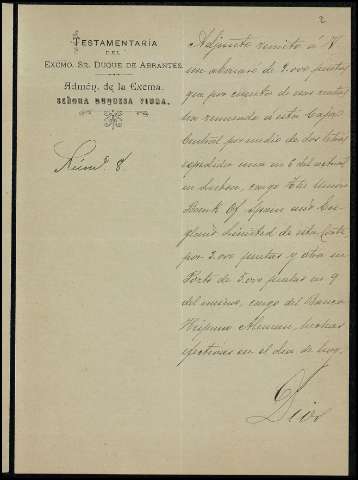 2
TESTAMENTARÍA
DEL
EXCMO. SR. DUQUE DE ABRANTES
Admón. de la Excma.
SEÑORA DUQUESA VIUDA.
Núm. 8.
Adjunto remito á V
un abonaré de 9.000 pesetas
que por cuenta de esas rentas
ha remesado á esta Caja
Central por medio de dos letras
expedidas una en 6 del actual
en Lisboa, cargo The Union
Bank Of Spain and En-
gland Limited de esta Corte
por 2.000 pesetas y otra en
Porto de 7.000 pesetas en 9
del mismo, cargo del Banco
Hispano Aleman, hechas
efectivas en el dia de hoy.
Dios